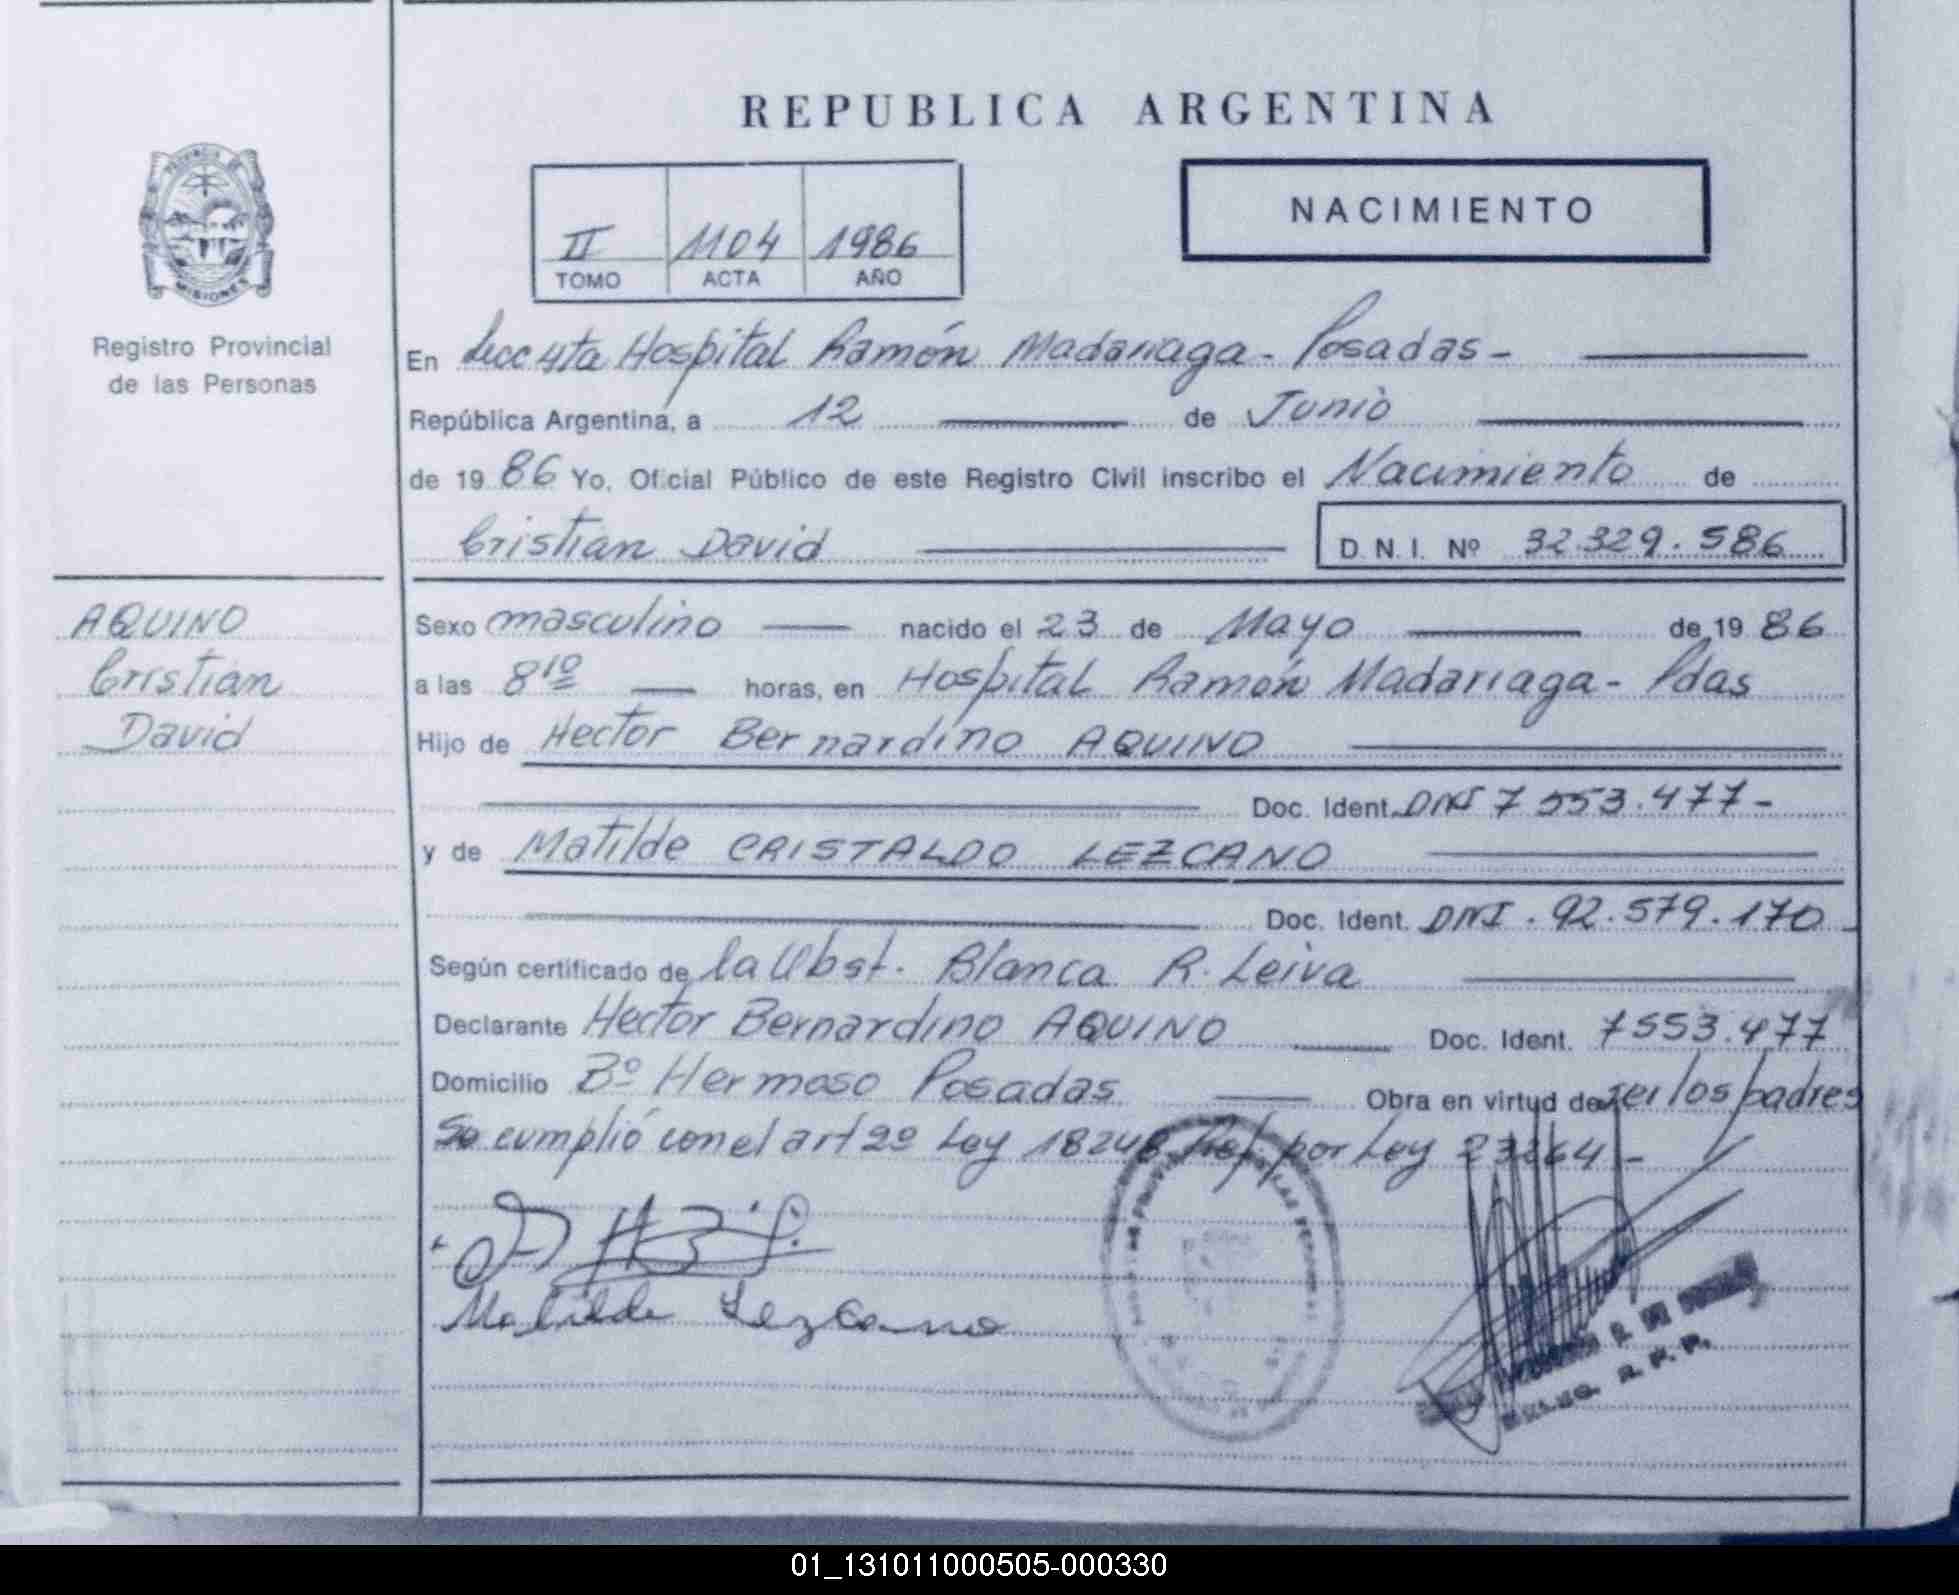 REPUBLICA ARGENTINA
NACIMIENTO
II 1104 1986
TOMO ACTA AÑO
PROVINCIA DE
MISIONES
Registro Provincial
de las Personas
En Secc 4ta Hospital Ramón Madariaga - Posadas -
República Argentina, a 12 de Junio
de 19 86 Yo, Oficial Público de este Registro Civil inscribo el Nacimiento de
Cristian David D.N.I. Nº 32.329.586
AQUINO
Cristian
David
Sexo masculino nacido el 23 de Mayo de 19 86
a las 8 10 horas, en Hospital Ramón Madariaga - Pdas
Hijo de Hector Bernardino AQUINO
Doc. Ident. DNI 7 553.477-
y de Matilde CRISTALDO LEZCANO
Doc. Ident. DNI. 92.579.170
Según certificado de la Obst. Blanca R. Leiva
Declarante Hector Bernardino AQUINO Doc. Ident. 7553.477
Domicilio Bº Hermoso Posadas Obra en virtud de ser los padres
Se cumplió con el art 2º Ley 18248 por Ley 23264 -
Matilde Lezcano
R. P. P.
01_131011000505-000330